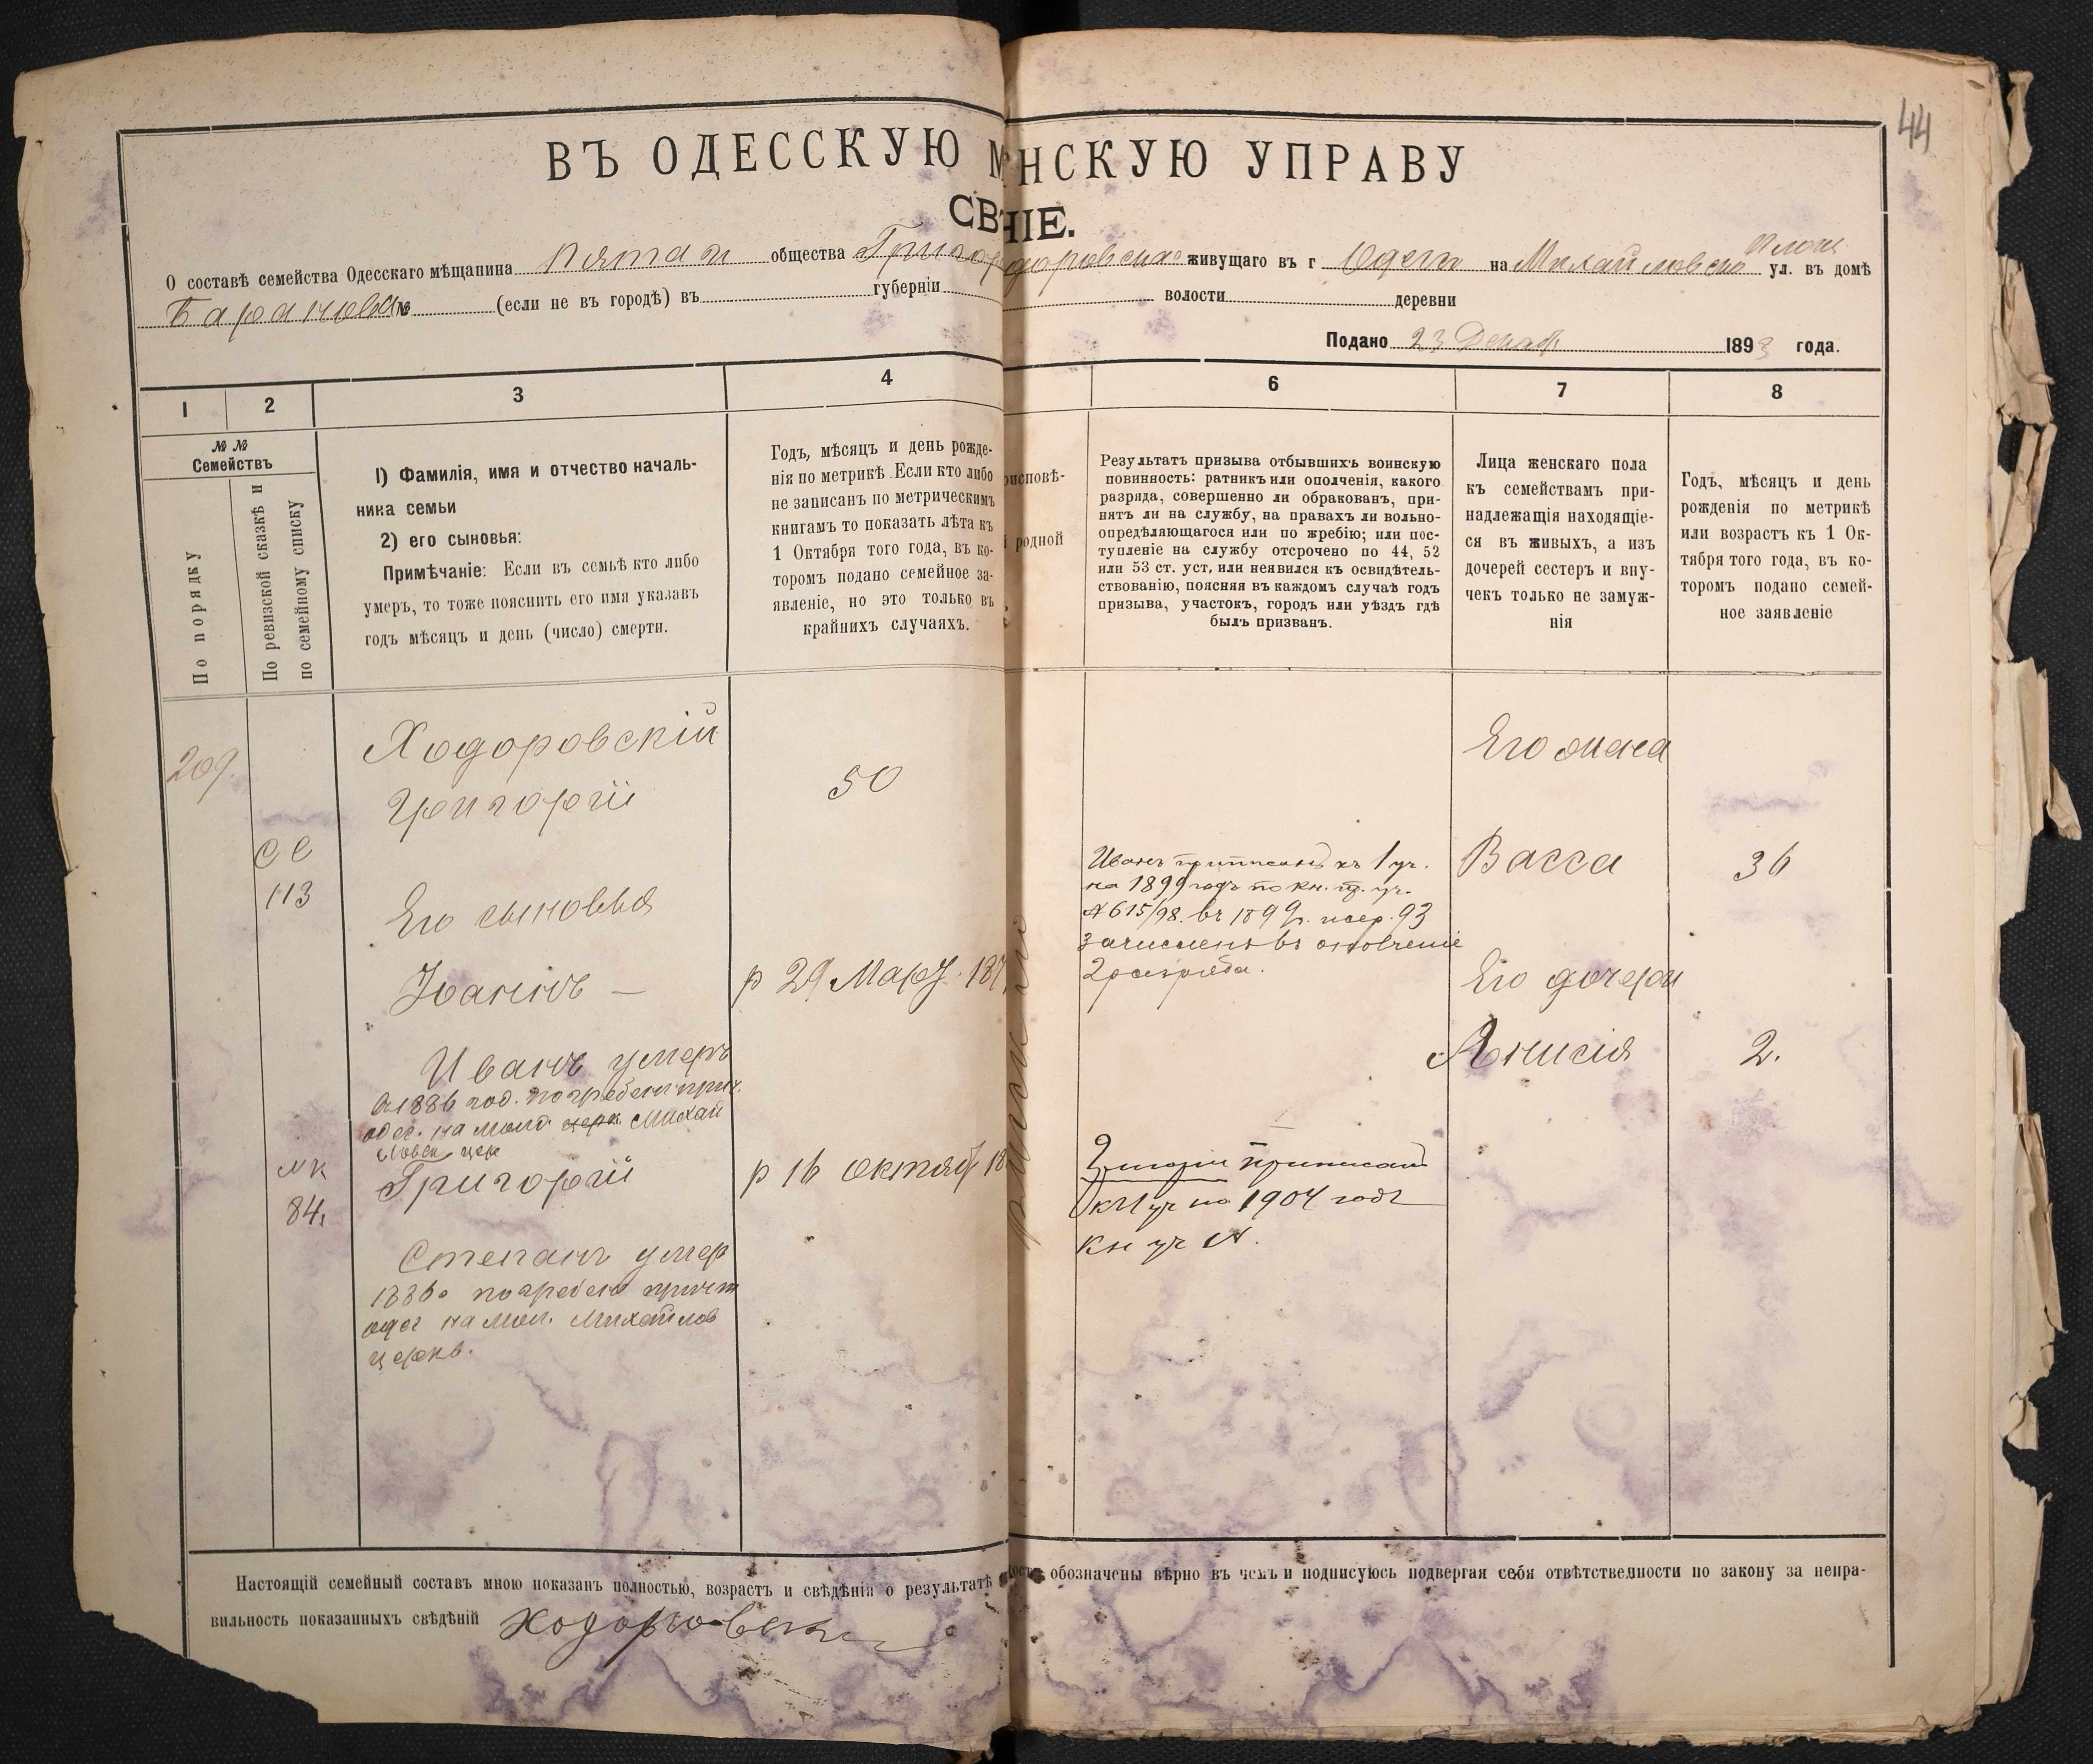 44
ВЪ ОДЕССКУЮ М
НСКУЮ УПРАВУ
СВ
НІЕ.
О составѣ семейства Одесскаго мѣщанина общества Григор
живущаго въ г Одесѣ на Михайловско площ ул. въ домѣ
Баранова № (если не въ городѣ) въ губерніи
волости деревни
Подано 23 Декаб 1893 года.
1 2 3 4
6 7 8
№ №
Семействъ
По порядку
По ревизской сказкѣ и
по семейному списку
1) Фамилія, имя и отчество началь-
ника семьи
2) его сыновья:
Примѣчаніе: Если въ семьѣ кто либо
умеръ, то тоже пояснить его имя указавъ
годъ мѣсяцъ и день (число) смерти.
Годъ, мѣсяцъ и день рожде-
нія по метрикѣ. Если кто либо
не записанъ по метрическимъ
книгамъ то показать лѣта къ
1 Октября того года, въ ко-
торомъ подано семейное за-
явленіе, но это только въ
крайнихъ случаяхъ.
исповѣ-
родной
Результатъ призыва отбывшихъ воинскую
повинность: ратникъ или ополченія, какого
разряда, совершенно ли обракованъ, при-
нятъ ли на службу, на правахъ ли вольно-
опредѣляющагося или по жребію; или пос-
тупленіе на службу отсрочено по 44, 52
или 53 ст. уст, или неявился къ освидѣтель-
ствованію, поясняя въ каждомъ случаѣ годъ
призыва, участокъ, городъ или уѣздъ гдѣ
былъ призванъ.
Лица женскаго пола
къ семействамъ при-
надлежащія находящіе-
ся въ живыхъ, а изъ
дочерей сестеръ и вну-
чекъ только не замуж-
нія
Годъ, мѣсяцъ и день
рожденія по метрикѣ
или возрастъ къ 1 Ок-
тября того года, въ ко-
торомъ подано семей-
ное заявленіе
209.
Ходоровскій
Григорій
50
Его жена
СС
113
Васса
36
Его сыновья
Іоаннъ —
р 29 Март 187
Иванъ приписанъ къ 1 уч.
на 1899 годъ по кн. пр. уч.
№ 615/98. въ 1899 г. жер. 93
зачисленъ въ ополченіе
2 разряда.
Его дочери
Анисія
2.
Иванъ умеръ
1886 год. погребенъ прич.
одес. на молд. церк Михай
ловск цер
МК
84.
Григорій
р 16 октяб 18
Григорій приписанъ
къ 1 уч на 1904 годъ
кн уч №.
Степанъ умер
1886 погребенъ причт
одес на мол. Михайлов
церкв.
Настоящій семейный составъ мною показанъ полностью, возрастъ и свѣдѣнія о результатѣ
обозначены вѣрно въ чемъ и подписуюсь подвергая себя отвѣтственности по закону за непра-
вильность показанныхъ свѣдѣній Ходоровски